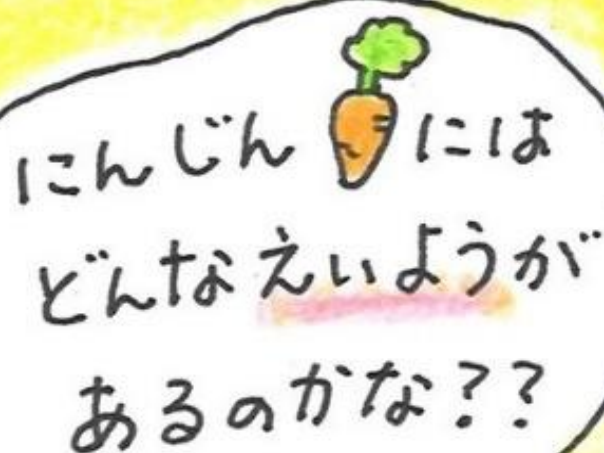 にんじんには
どんなえいようが
あるのかな??